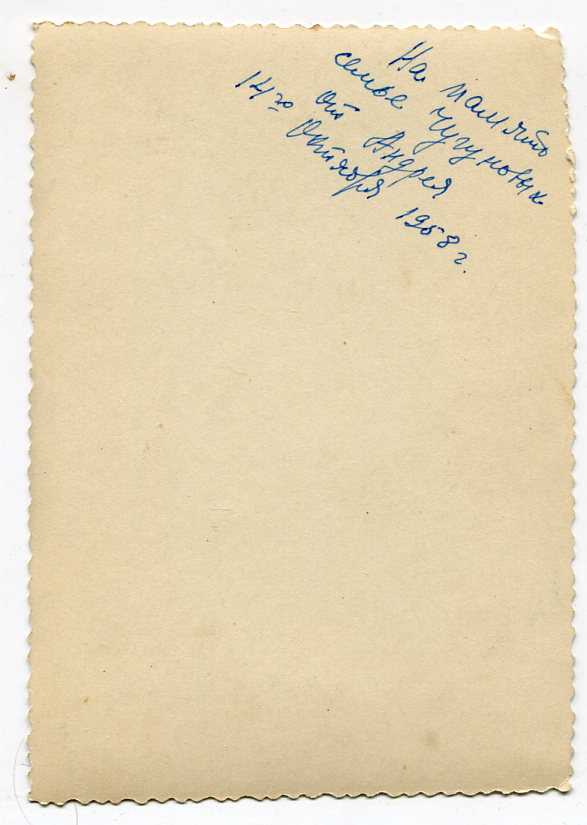 На память
семье Чугуновых
от Андрея
14го Октября 1958 г.